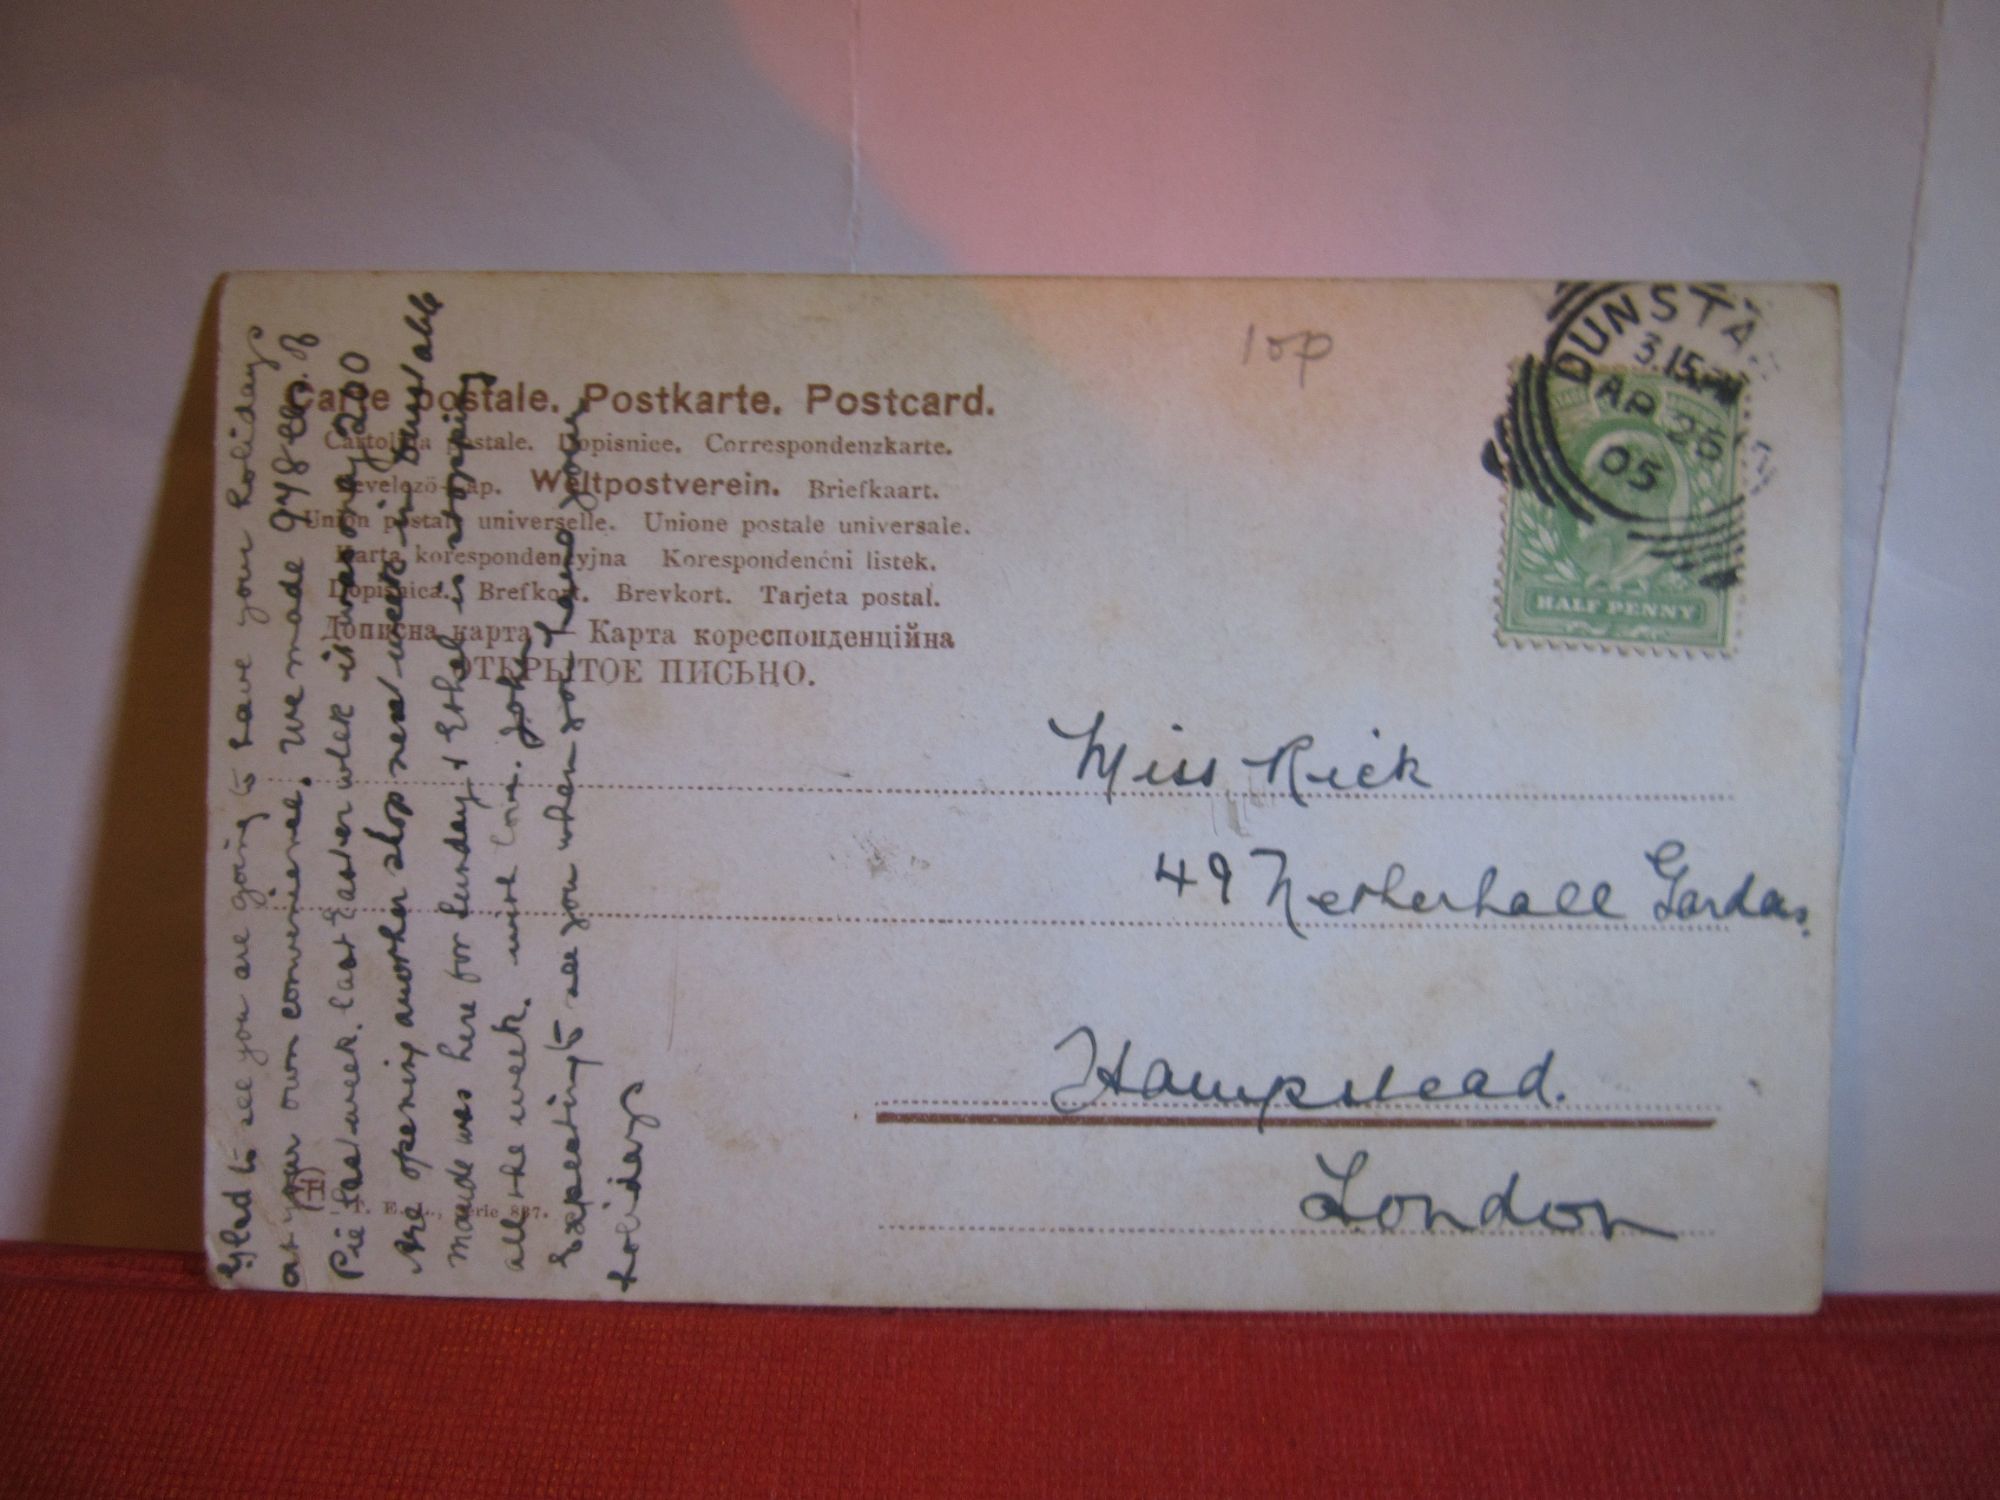 Carte postale. Postkarte. Postcard.
Cartolina postale. Dopisnice. Correspondenzkarte.
Levelező-Lap. Weltpostverein. Briefkaart.
Union postale universelle. Unione postale universale.
Karta korespondencyjna Korespondenčni listek.
Dopisnica. Brefkort. Brevkort. Tarjeta postal.
Дописна карта — Карта кореспонденційна
ОТКРЫТОЕ ПИСЬНО.
10p
DUNSTA
3.15PM
AP 25
05
HALF PENNY
Miss Rick
49 Netherhall Gardens.
Hampstead.
London
Glad to see you are going to have your holidays
at your own convenience. We made 978 lbs. of
Pie last week. last Easter week it was only 200
Are opening another shop next week in Dunstable
Maude was here for Sunday & Ethel is stopping
all the week. with love. John
Expecting to see you when you have your
holidays
T. E. L., Serie 887.